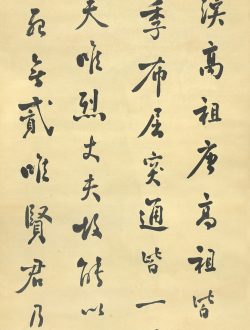 漢高祖唐高祖皆
季布屈突通皆一
天唯烈丈夫故能以
死無貳唯賢君乃